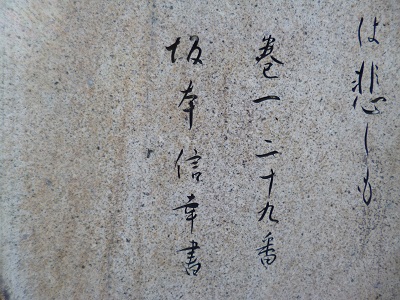 は悲しも
巻一、二十九番
坂本信幸書